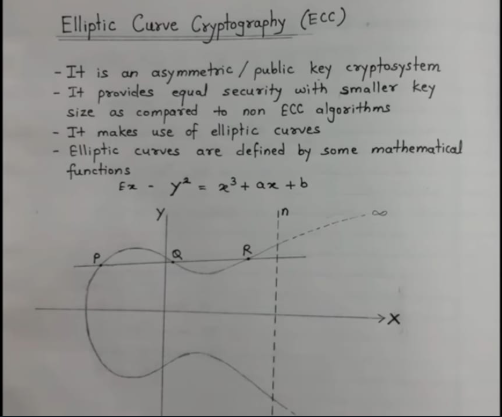 Elliptic Curve Cryptography (ECC)
- It is an asymmetric / public key cryptosystem
- It provides equal security with smaller key
size as compared to non ECC algorithms
- It makes use of elliptic curves
- Elliptic curves are defined by some mathematical
functions
Ex - y² = x³ + ax + b
y n ∞
P Q R
X